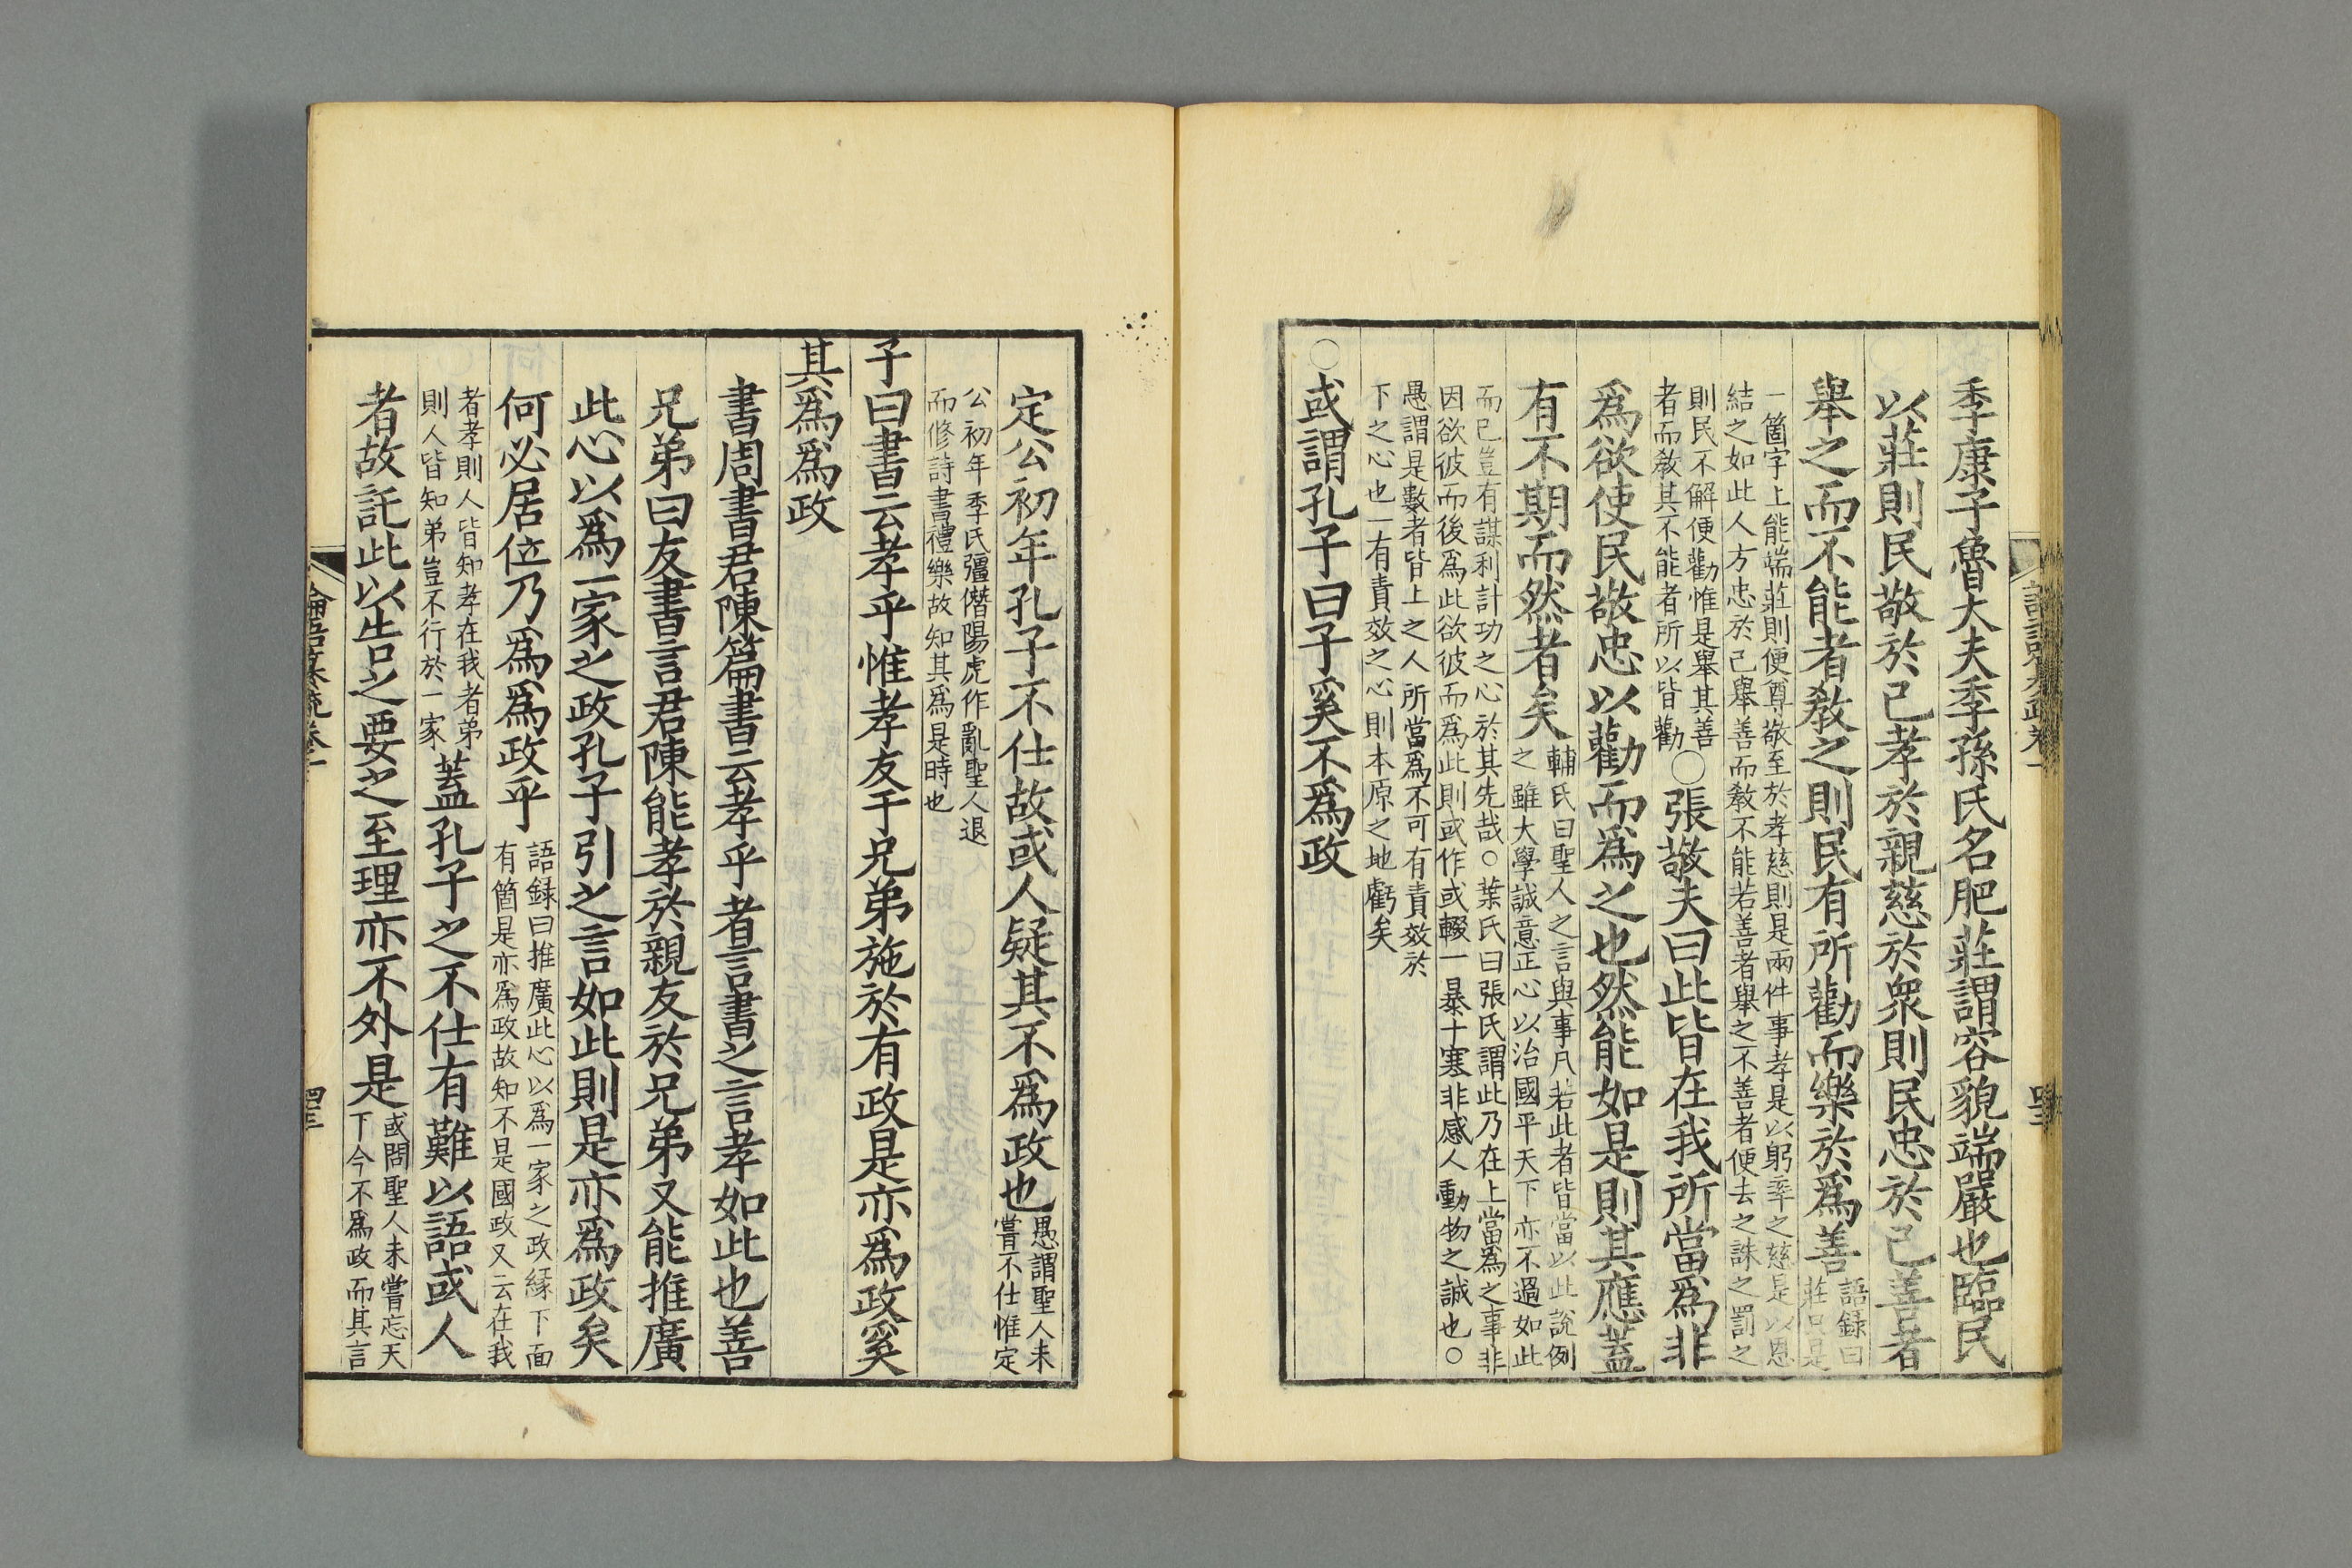 季康子魯大夫季孫氏名肥莊謂容貌端嚴也臨民
以莊則民敬於己孝於親慈於衆則民忠於己善者
舉之而不能者敎之則民有所勸而樂於爲善
語録曰
莊只是
一箇字上能端莊則便尊敬至於孝慈則是兩件事孝是以躬率之慈是以恩
結之如此人方忠於己舉善而敎不能若善者舉之不善者便去之誅之罰之
則民不解便勸惟是舉其善
者而敎其不能者所以皆勸
○張敬夫曰此皆在我所當爲非
爲欲使民敬忠以勸而爲之也然能如是則其應蓋
有不期而然者矣
輔氏曰聖人之言與事凡若此者皆當以此說例
之雖大學誠意正心以治國平天下亦不過如此
而已豈有謀利計功之心於其先哉○葉氏曰張氏謂此乃在上當爲之事非
因欲彼而後爲此欲彼而爲此則或作或輟一暴十寒非感人動物之誠也○
愚謂是數者皆上之人所當爲不可有責效於
下之心也一有責效之心則本原之地虧矣
○或謂孔子曰子奚不爲政
定公初年孔子不仕故或人疑其不爲政也
愚謂聖人未
嘗不仕惟定
公初年季氏彊僭陽虎作亂聖人退
而修詩書禮樂故知其爲是時也
子曰書云孝乎惟孝友于兄弟施於有政是亦爲政奚
其爲爲政
書周書君陳篇書云孝乎者言書之言孝如此也善
兄弟曰友書言君陳能孝於親友於兄弟又能推廣
此心以爲一家之政孔子引之言如此則是亦爲政矣
何必居位乃爲爲政乎
語録曰推廣此心以爲一家之政縁下面
有箇是亦爲政故知不是國政又云在我
者孝則人皆知孝在我者弟
則人皆知弟豈不行於一家
蓋孔子之不仕有難以語或人
者故託此以告之要之至理亦不外是
或問聖人未嘗忘天
下今不爲政而其言